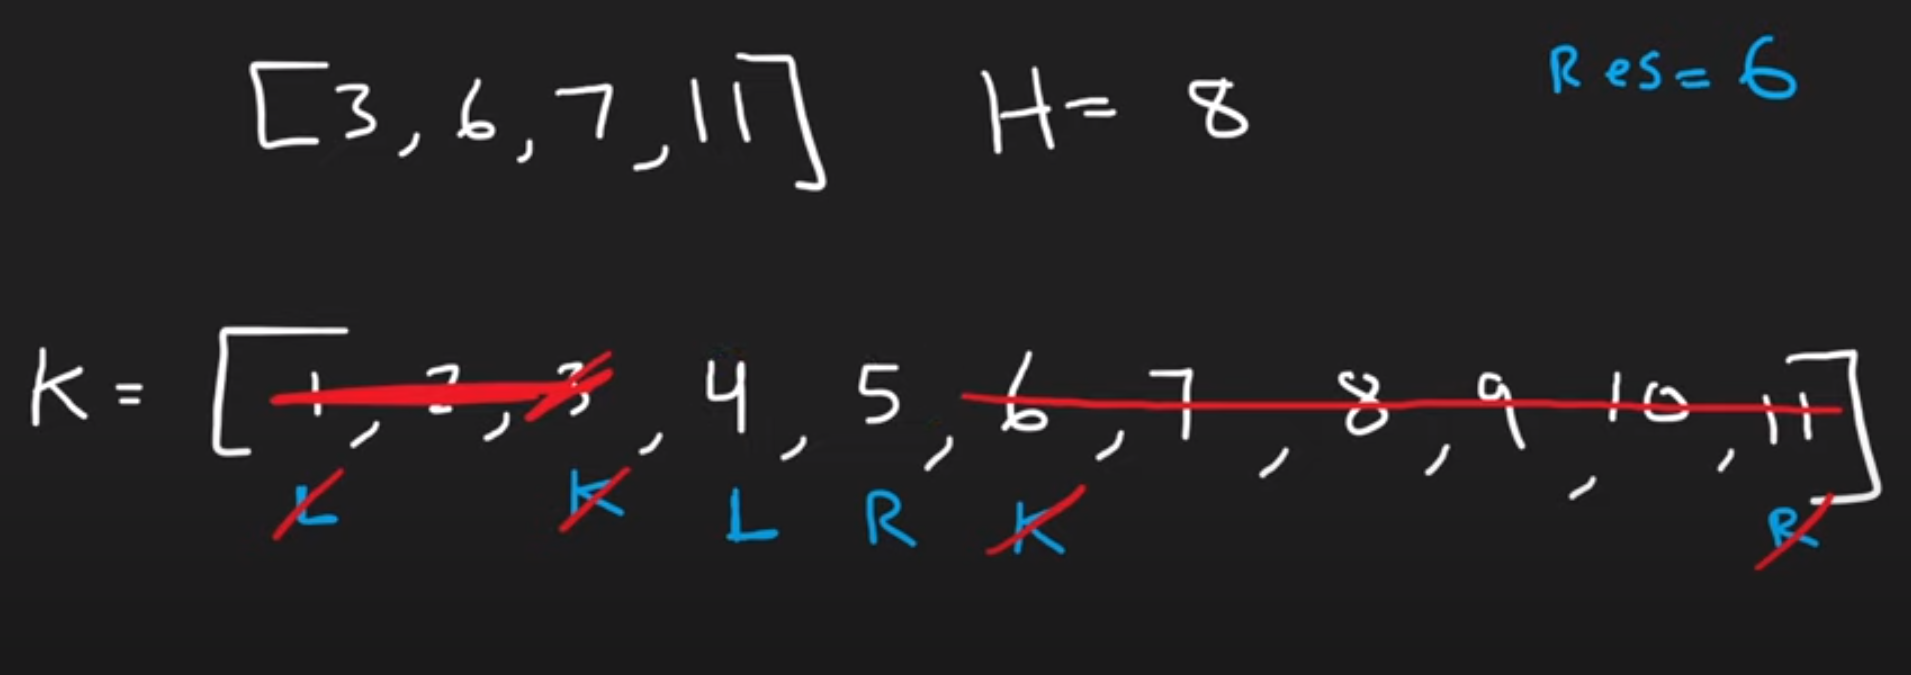 [3, 6, 7, 11] H = 8 Res = 6
K = [1, 2, 3, 4, 5, 6, 7, 8, 9, 10, 11]
L K L R K R